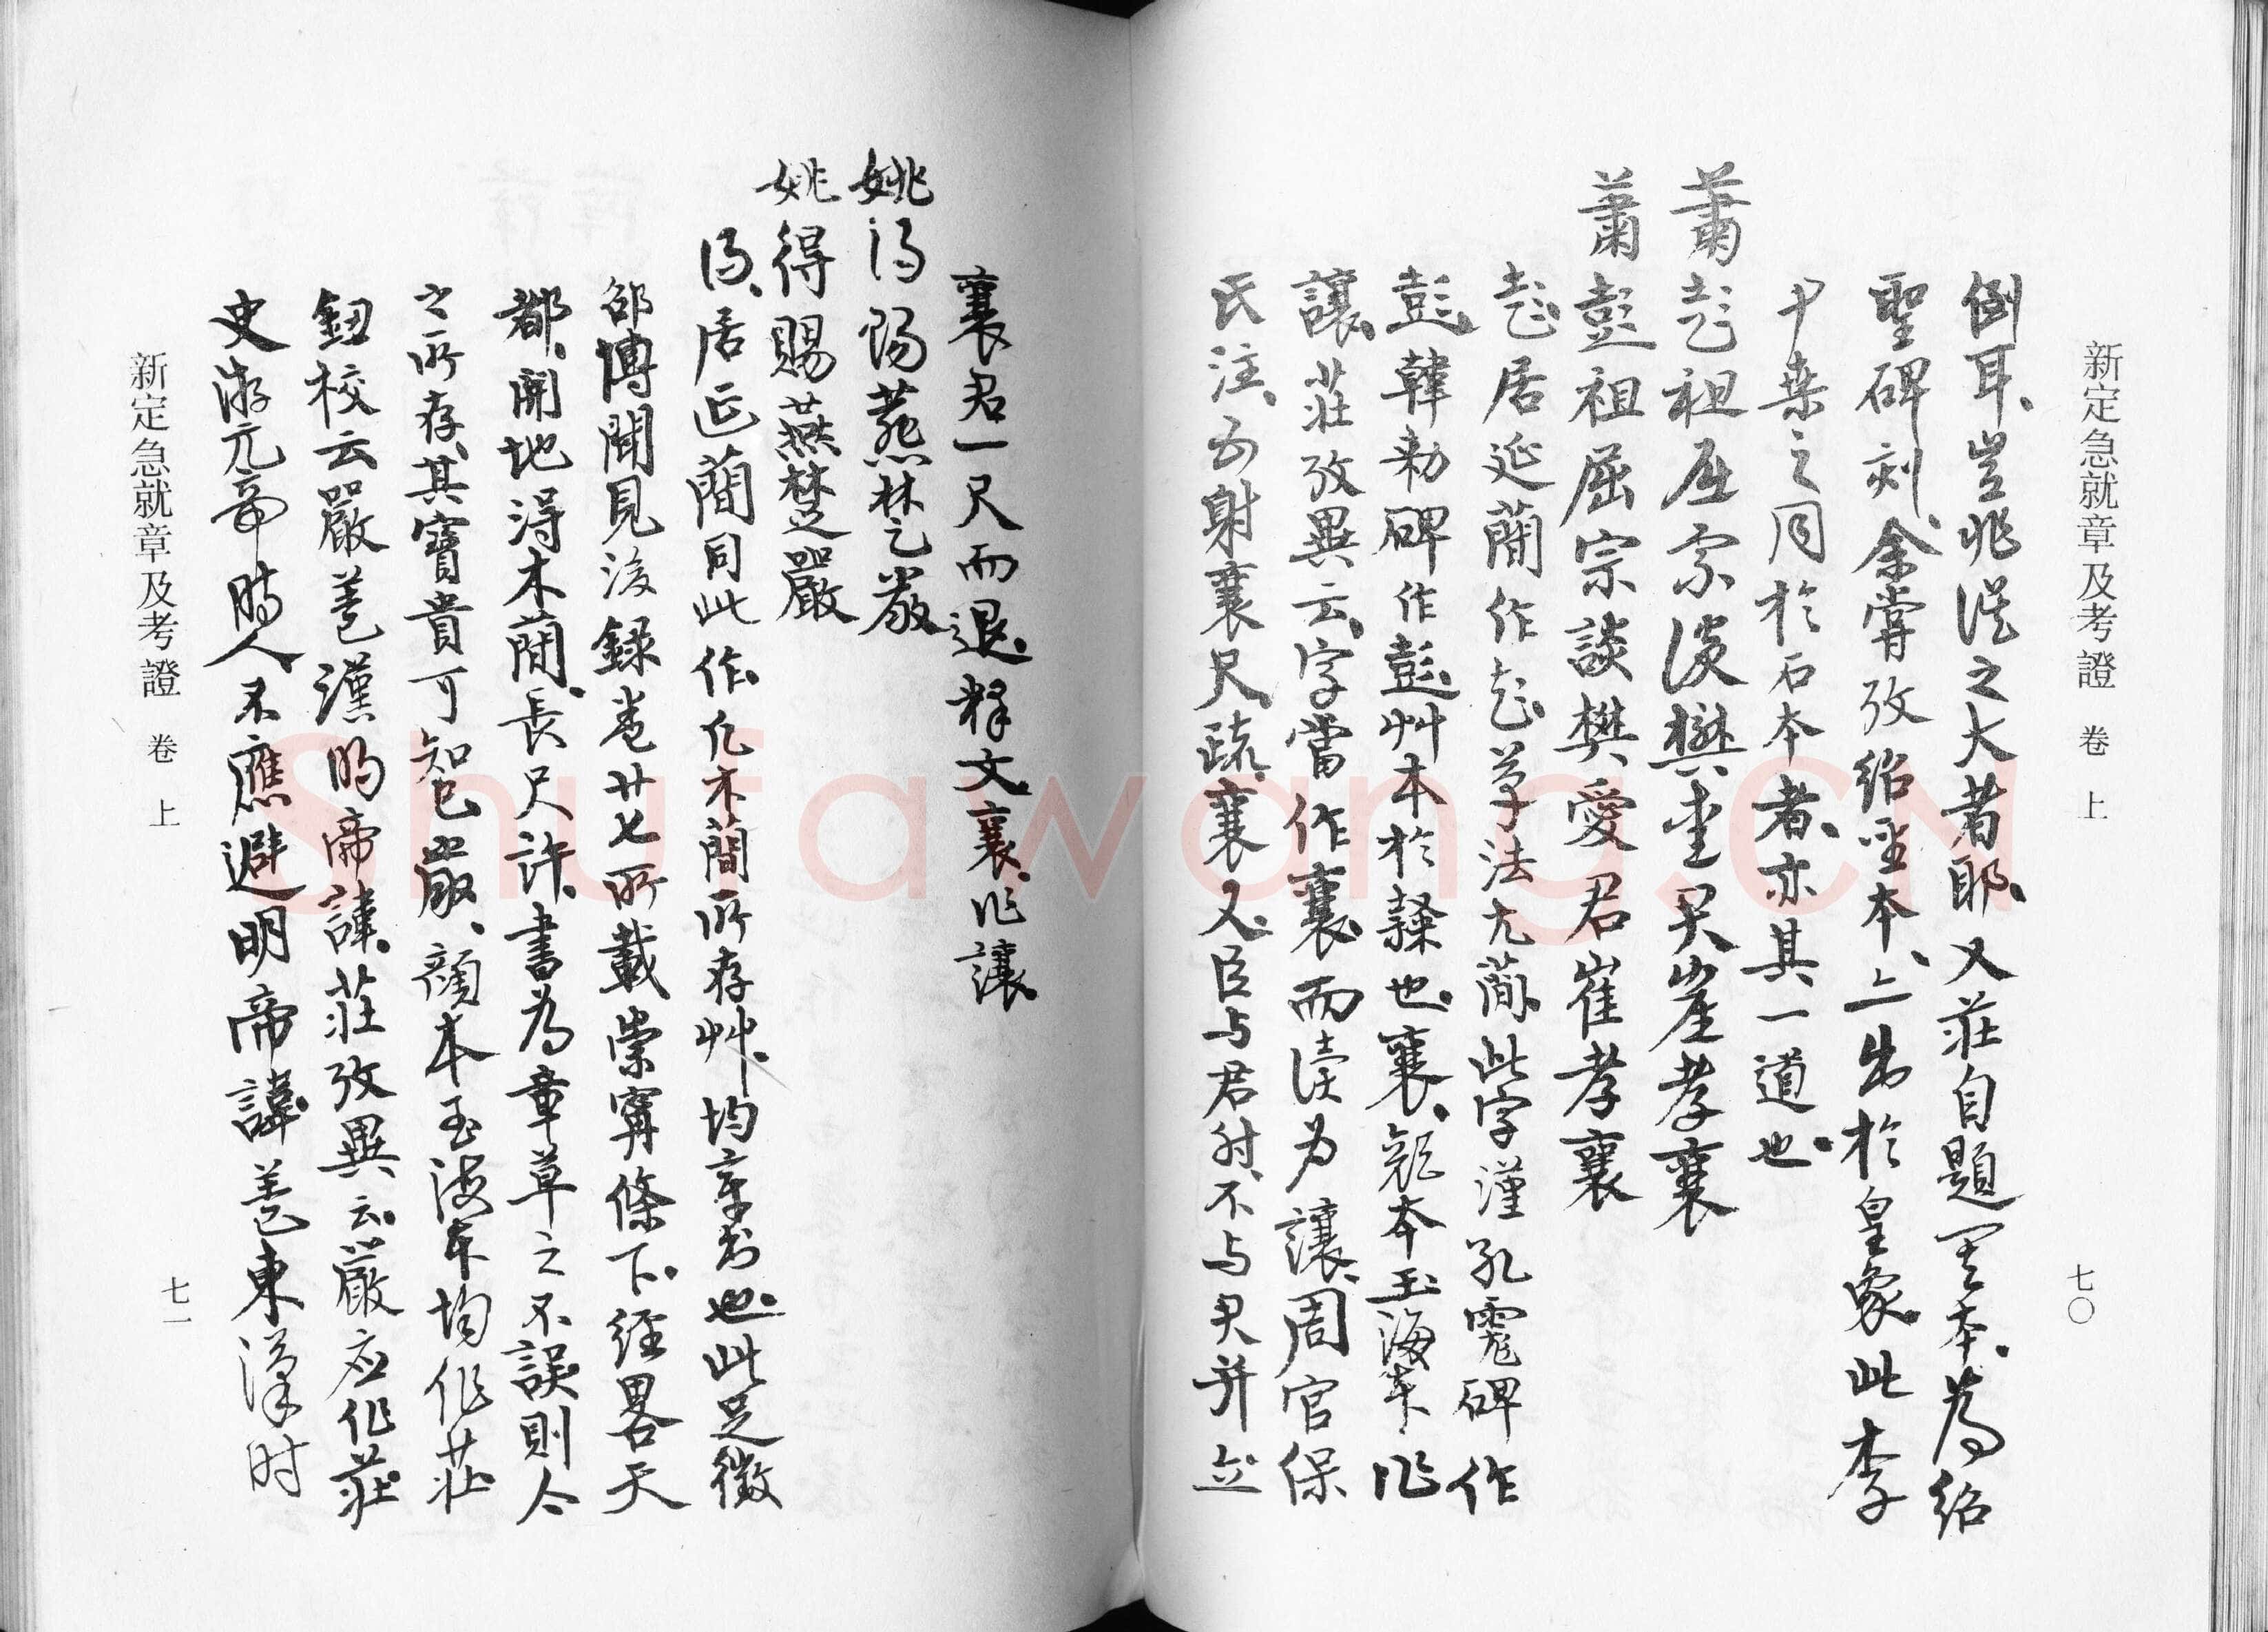 新定急就章及考證 卷上 七〇
倒耳豈非誤之大者耶又莊自題墨本為紹
聖碑刻余嘗攷紹聖本上出於皇象此李
尹桒之同於石本者亦其一道也
蕭彭祖屈宗談樊愛君崔孝襄
蕭彭祖屈宗談樊愛君崔孝襄
彭居延簡作彭草法尤簡此字漢孔宙碑作
彭韓勑碑作彭艸本於隸也襄顏本玉海本作
讓莊攷異云字當作襄而讀為讓周官保
氏注五射襄尺疏襄又臣與君射不與君並立
襄君一尺而退釋文襄作讓
姚得賜燕楚嚴
姚得賜燕楚嚴
得居延簡同此作凡木簡所存艸均章書也此足徵
邵博聞見後錄卷廿七所載崇寧條下經畧天
都開地得木簡長尺許書為章草之不誤則今
之所存其寶貴可知已嚴顏本玉海本均作莊
鈕校云嚴蓋漢明帝諱莊攷異云嚴應作莊
史游元帝時人不應避明帝諱蓋東漢时
新定急就章及考證 卷上 七一
Shufawang.CN